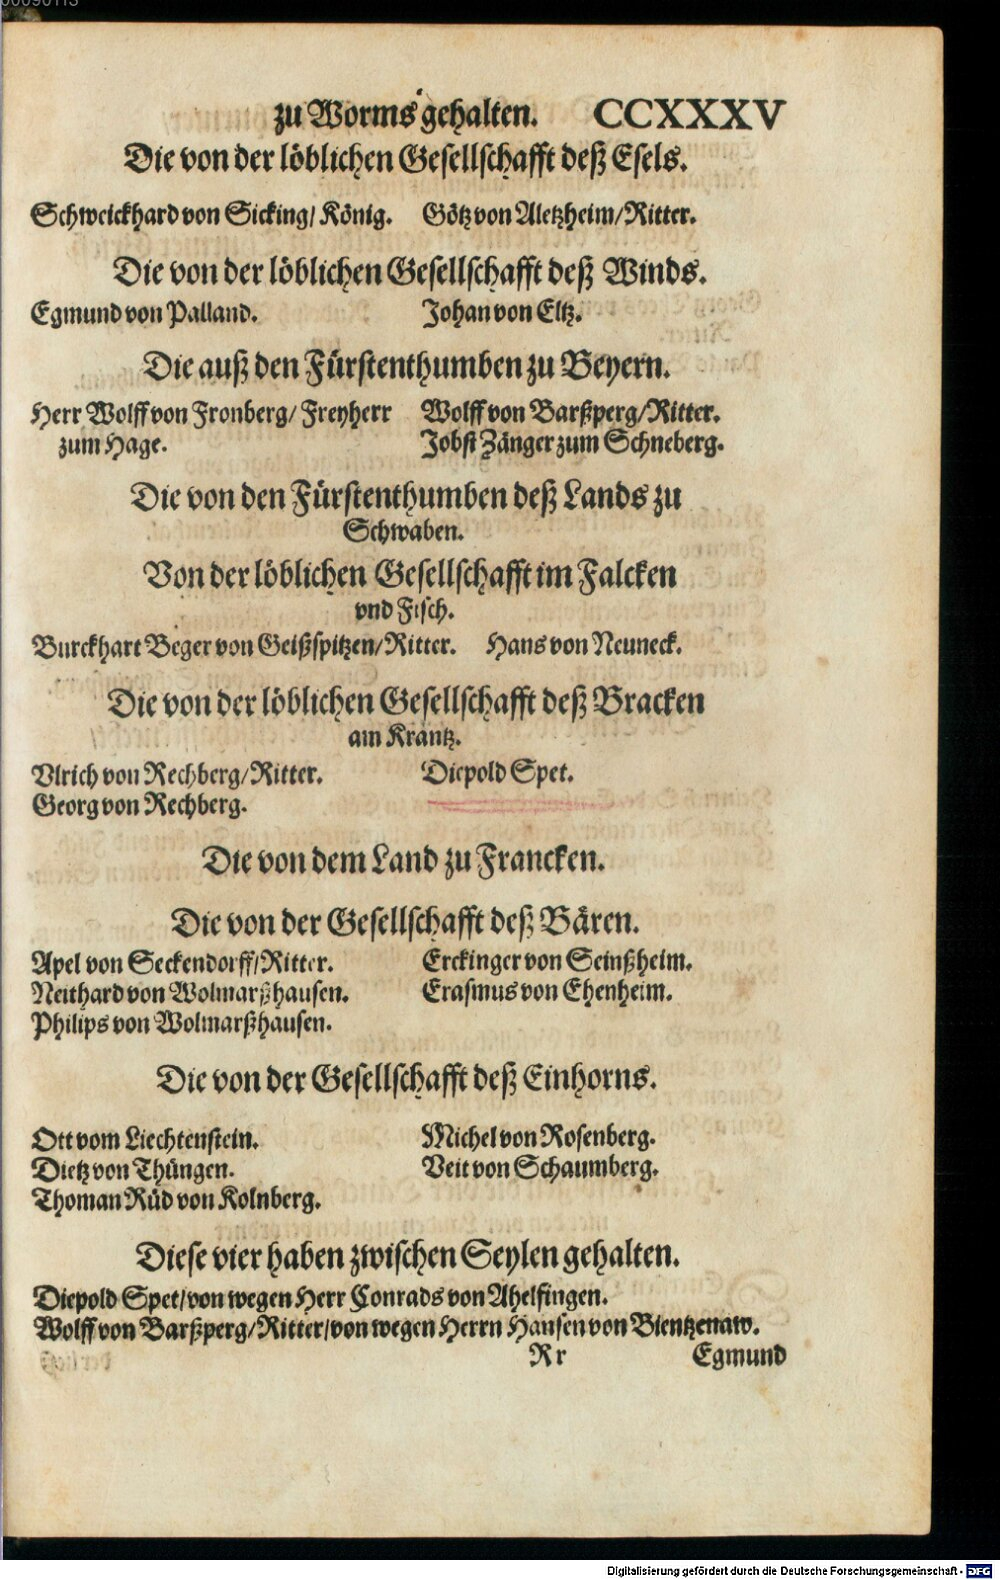 00090113
zu Worms gehalten. CCXXXV
Die von der löblichen Gesellschafft deß Esels.
Schweickhard von Sicking/ König. Götz von Aletzheim/ Ritter.
Die von der löblichen Gesellschafft deß Winds.
Egmund von Palland. Johan von Eltz.
Die auß den Fürstenthumben zu Beyern.
Herr Wolff von Fronberg/ Freyherr Wolff von Barßperg/ Ritter.
zum Hage. Jobst Zänger zum Schneberg.
Die von den Fürstenthumben deß Lands zu
Schwaben.
Von der löblichen Gesellschafft im Falcken
vnd Fisch.
Burckhart Beger von Geißspitzen/ Ritter. Hans von Neuneck.
Die von der löblichen Gesellschafft deß Bracken
am Kräntz.
Vlrich von Rechberg/ Ritter. Diepold Spet.
Georg von Rechberg.
Die von dem Land zu Francken.
Die von der Gesellschafft deß Bären.
Apel von Seckendorff/ Ritter. Erckinger von Seinßheim.
Neithard von Wolmarßhausen. Erasmus von Ehenheim.
Philips von Wolmarßhausen.
Die von der Gesellschafft deß Einhorns.
Ott vom Liechtenstein. Michel von Rosenberg.
Dietz von Thüngen. Veit von Schaumberg.
Thoman Rüd von Kolnberg.
Diese vier haben zwischen Seylen gehalten.
Diepold Spet/ von wegen Herr Conrads von Ahelfingen.
Wolff von Barßperg/ Ritter/ von wegen Herrn Hansen von Bientzenaw.
Rr Egmund
Digitalisierung gefördert durch die Deutsche Forschungsgemeinschaft - DFG